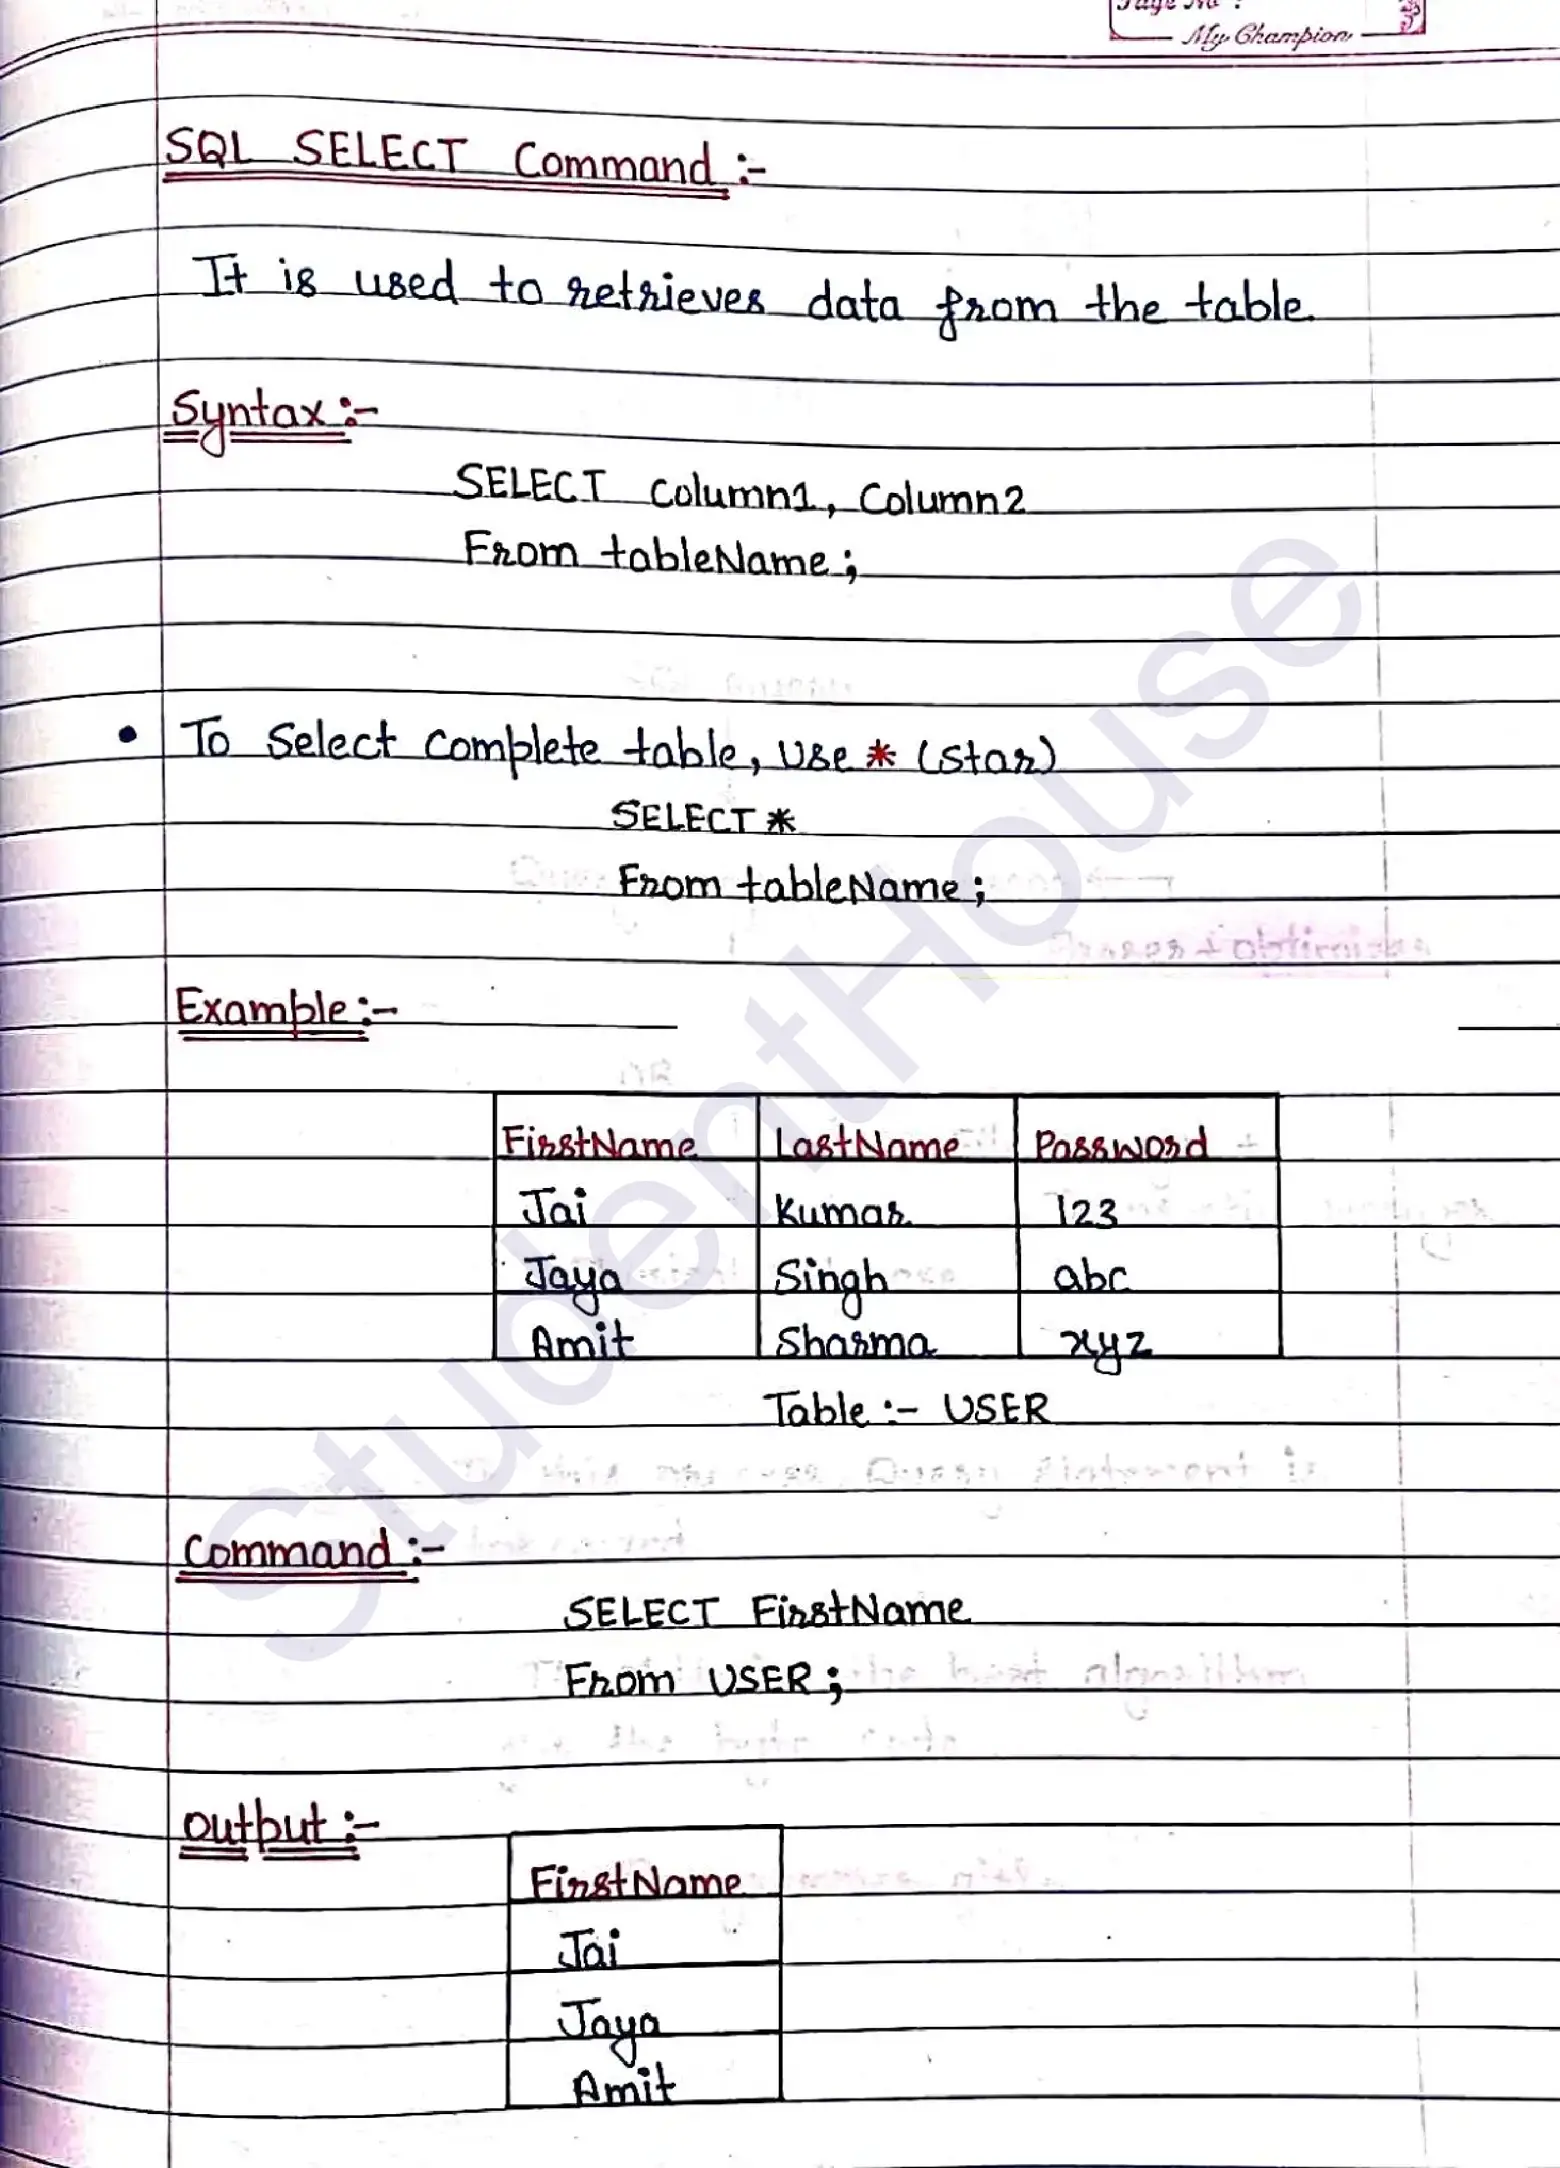 My Champion
SQL SELECT Command :-
It is used to retrieves data from the table.
Syntax :-
SELECT Column1, Column2
From tableName ;
• To Select Complete table, Use * (star)
SELECT *
From tableName ;
Example :-
FirstName LastName Password
Jai Kumar 123
Jaya Singh abc
Amit Sharma xyz
Table :- USER
Command :-
SELECT FirstName
From USER ;
Output :-
FirstName
Jai
Jaya
Amit
StudentHouse